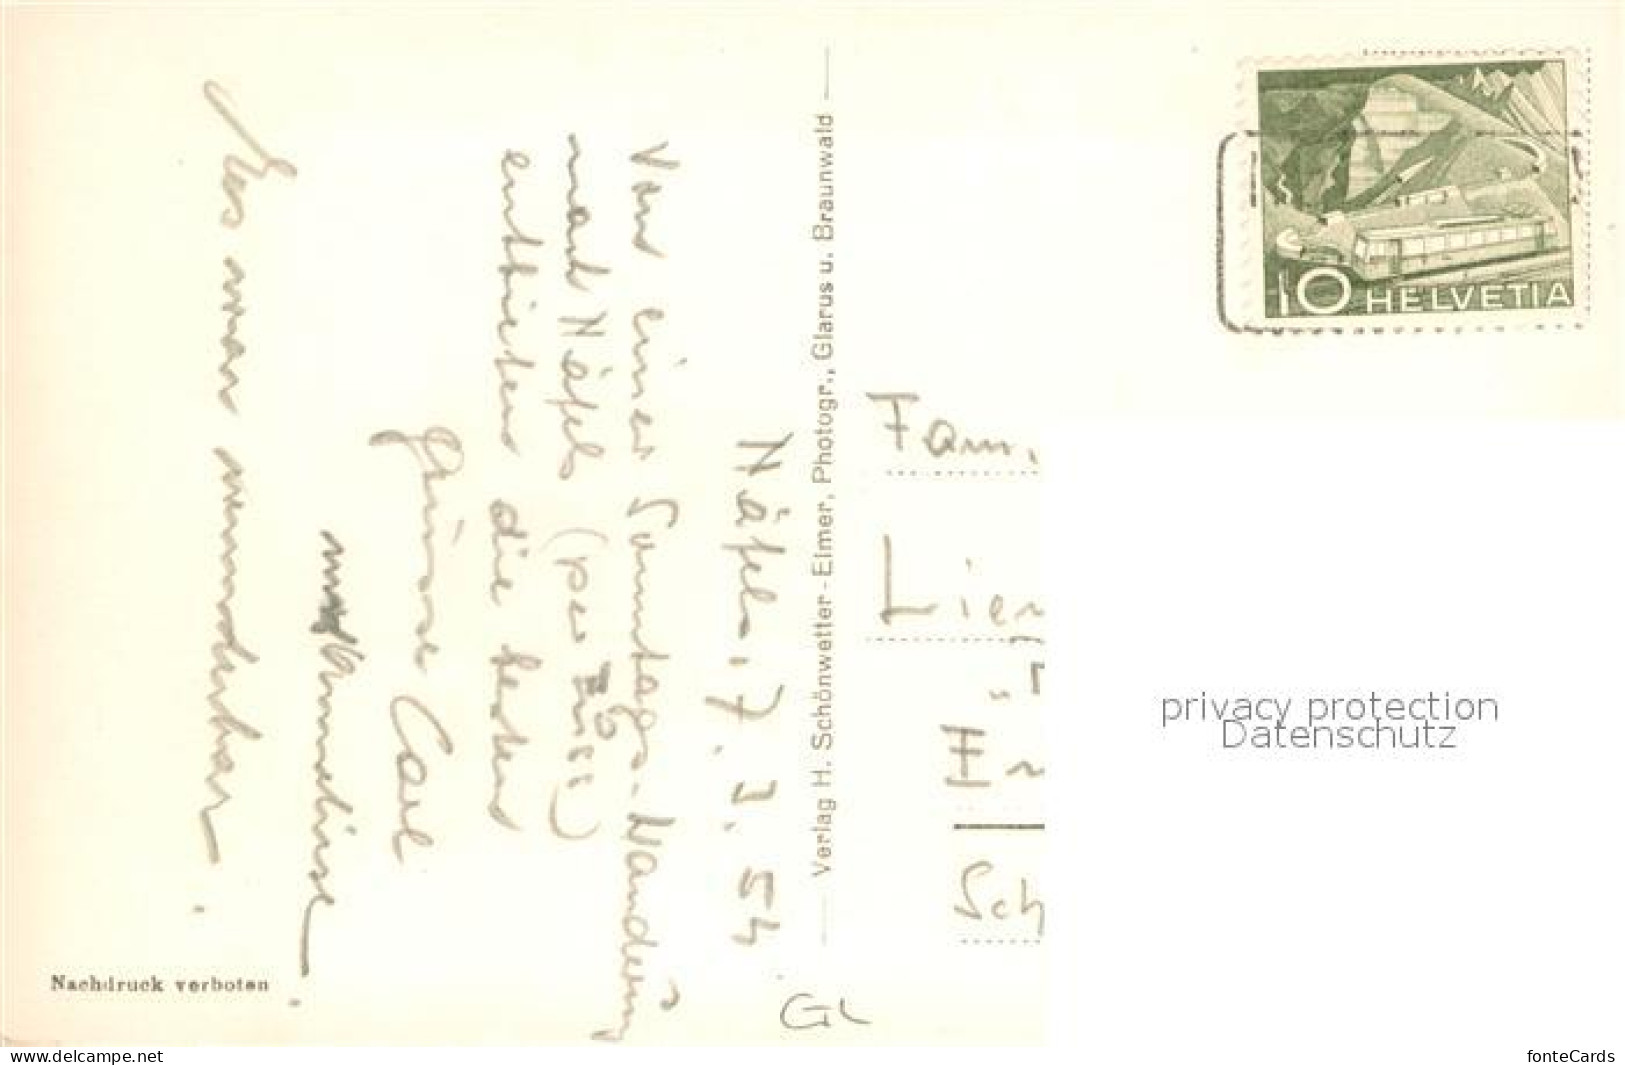 Näfels, 7. 3. 54
Von einer Sonntags-Wanderung
nach Näfels (per Füss)
entbieten die besten
Grüsse Carl
und Annelise.
Es war wunderbar.
Verlag H. Schönwetter-Elmer, Photogr., Glarus u. Braunwald
Nachdruck verboten
GL
10 HELVETIA
Fam.
Lien
H
Sch
privacy protection
Datenschutz
www.delcampe.net
fonteCards